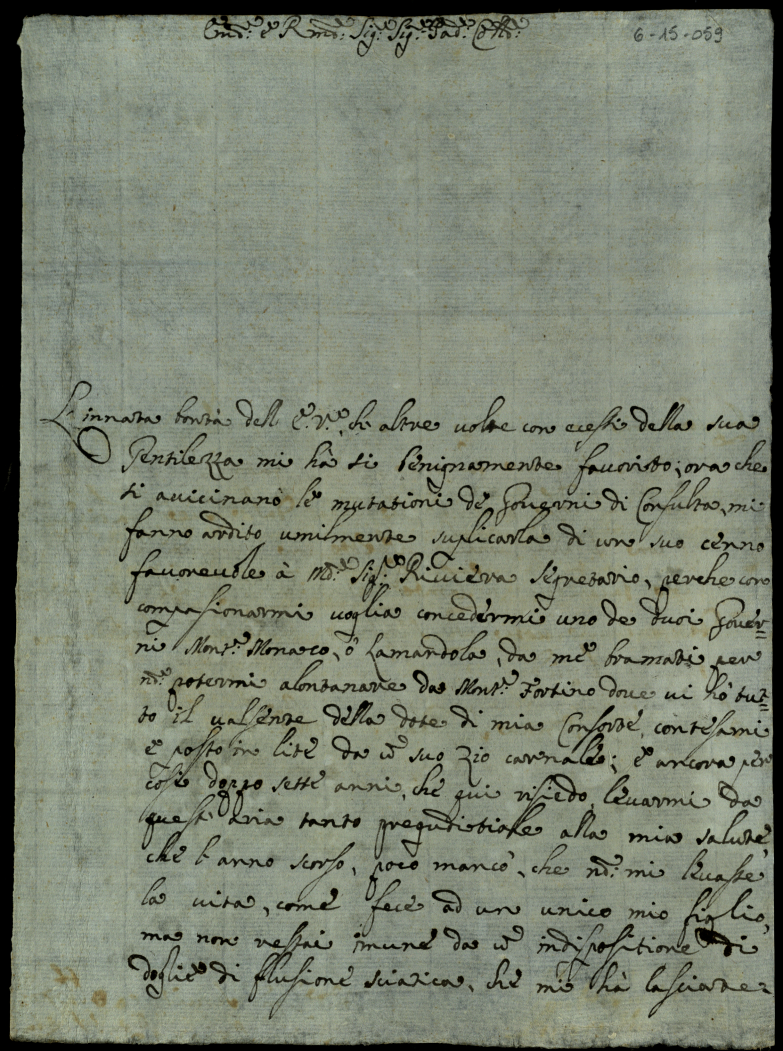 Emo: e Rmo: Sig: Sig:re Pad: Collo:
6-15-059
L'innata bontà dell E.V.e, che altre volte con ecessi della sua
Gentilezza mi hà si benignamente favorito; ora che
si avicinano le mutationi de Governi di Consulta, mi
fanno ardito umilmente suplicarla di un suo cenno
favorevole à Md:e Sig:re Riviera Segretario, perche con
compasionarmi voglia concedermi uno de duoi Gover=
ni Mont:e Monaco, ò Lamandola, da me bramati per
nd: potermi alontanare da Mont:e Fortino dove vi hò tut=
to il valsente della dote di mia Consorte, contesami
e posto in lite da un suo zio carnale; e ancora per
cosi doppo sette anni, che qui risiedo, levarmi da
quest aria tanto pregiuditiale alla mia salute,
che l'anno scorso, poco mancò, che nd: mi levasse
la vita, come fece ad un unico mio figlio,
ma non restai imune da un indispositione di
doglie di flusione sciatica, che mi hà lasciate=